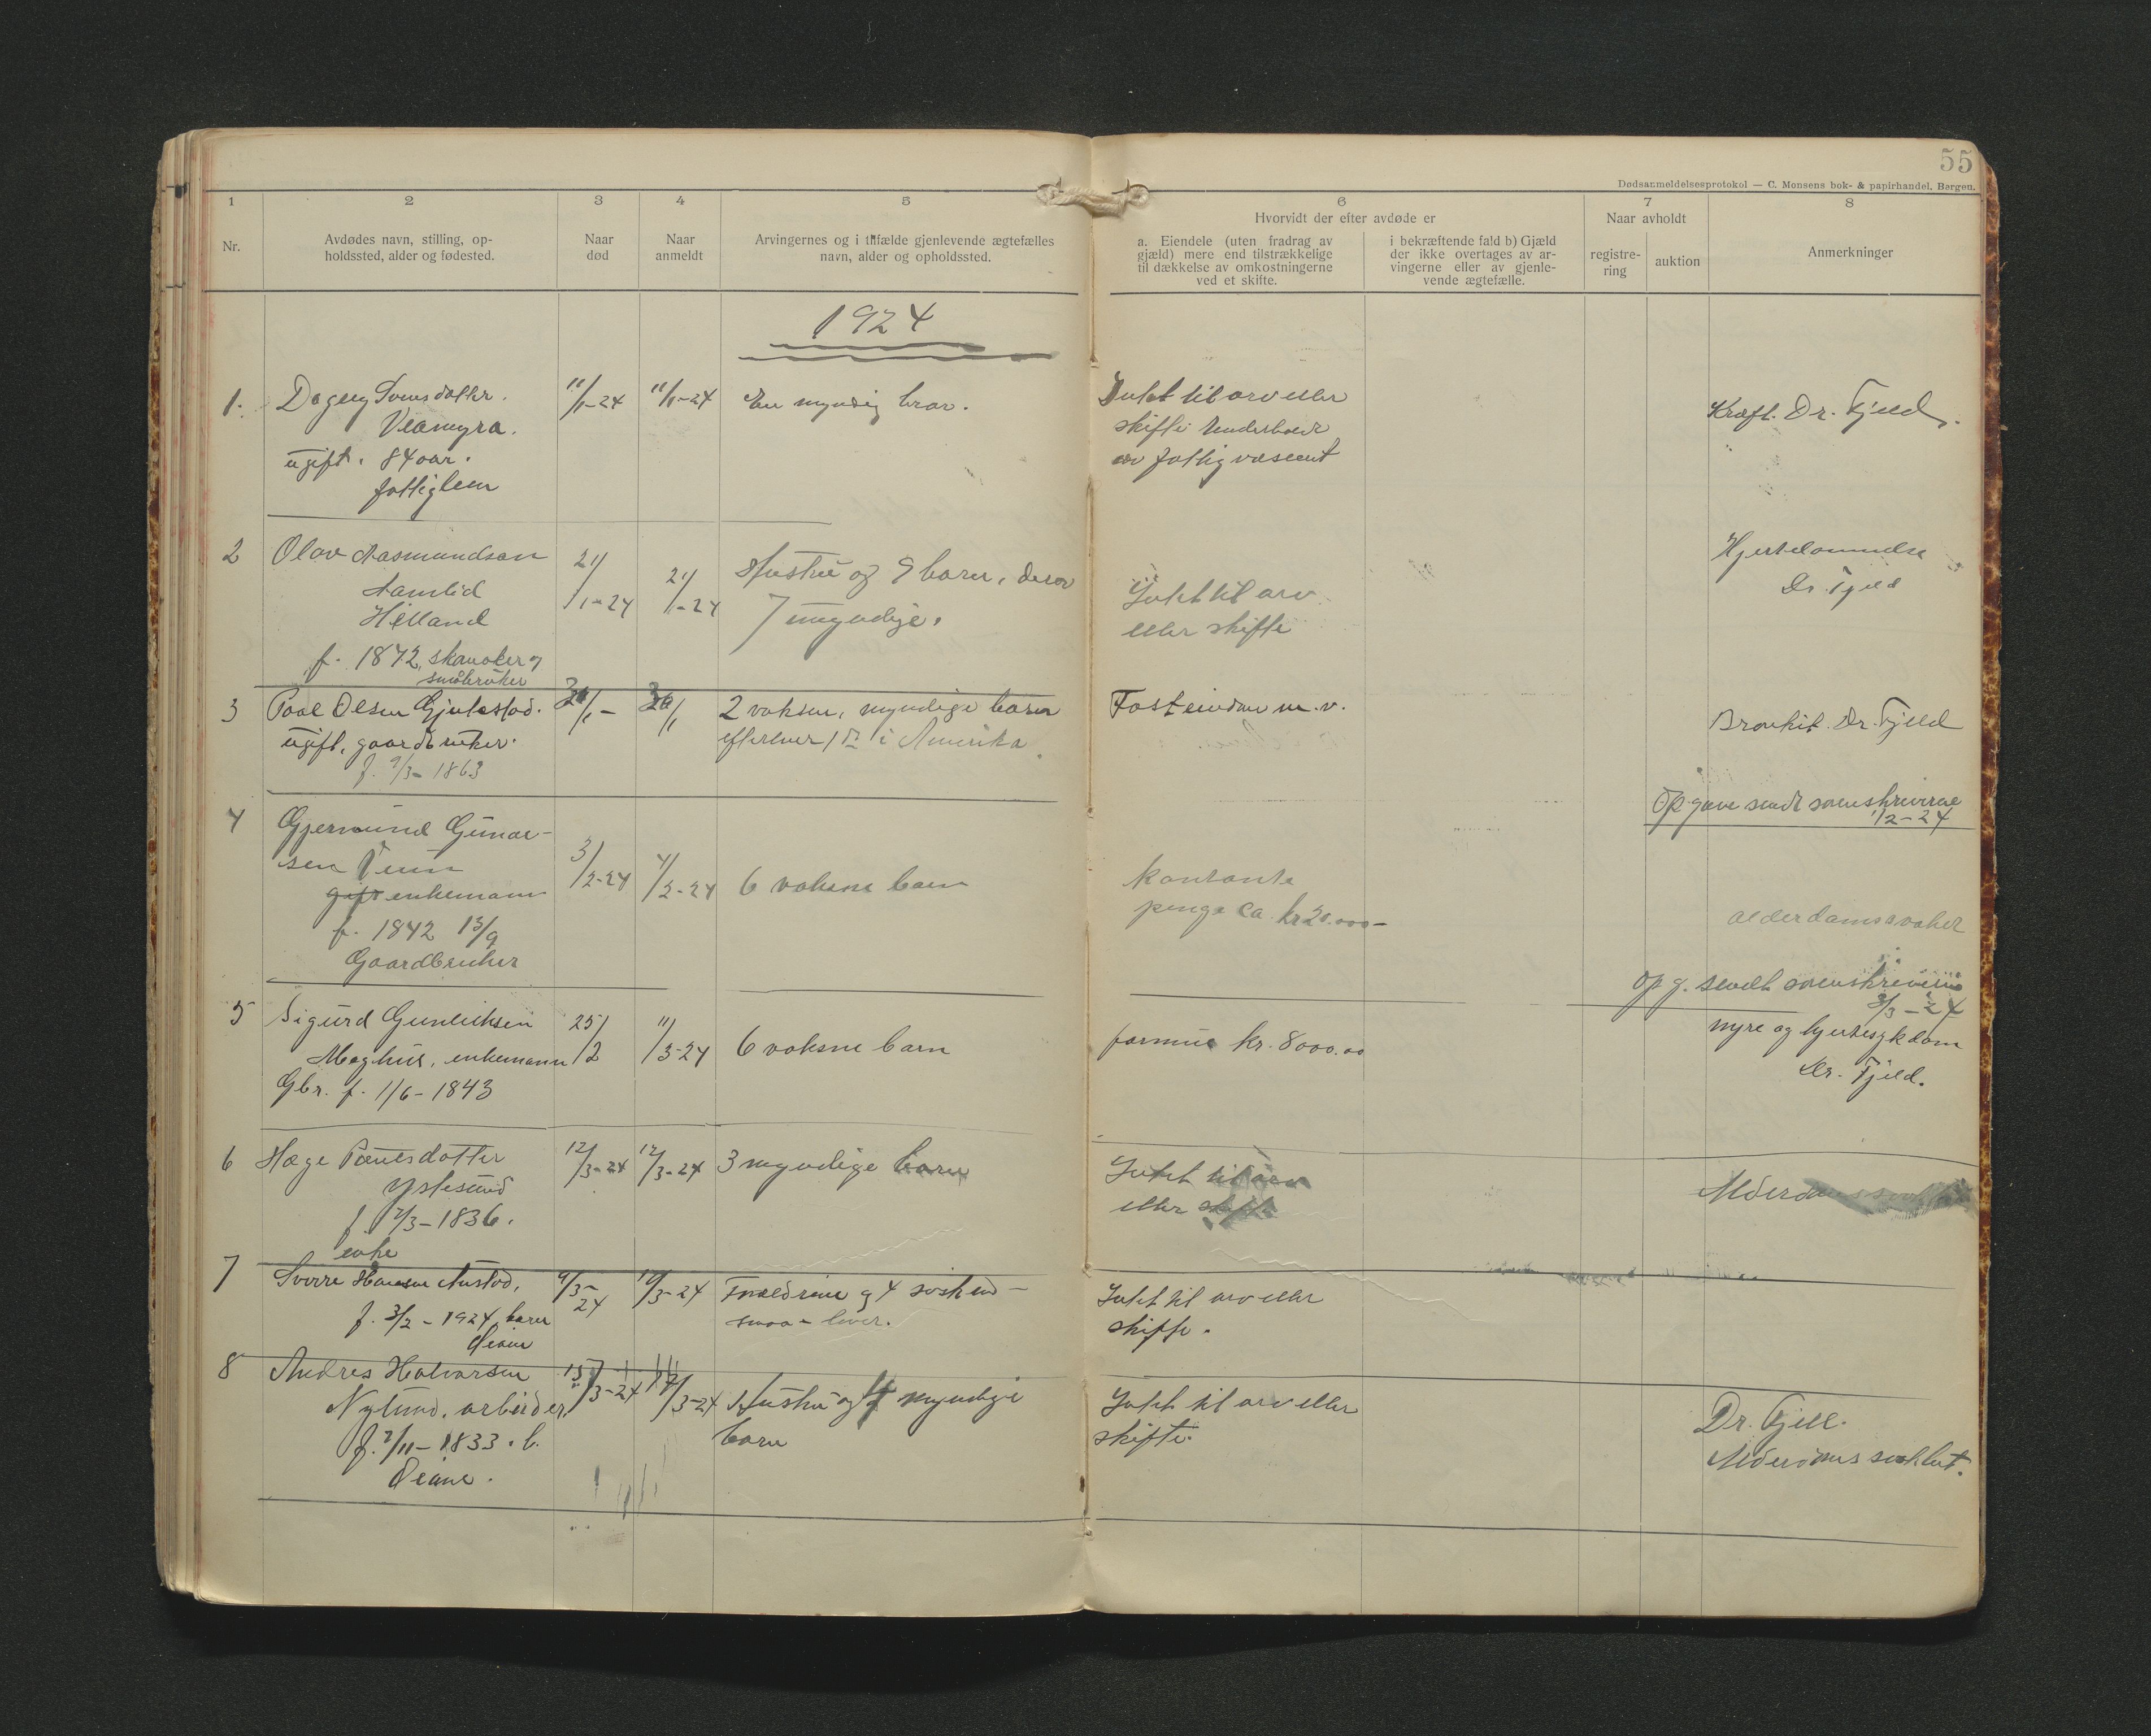 55
Dødsanmeldelsesprotokol — C. Monsens bok- & papirhandel, Bergen.
1 2 3 4 5 6 7 8
Nr.
Avdødes navn, stilling, op-
holdssted, alder og fødested.
Naar
død
Naar
anmeldt
Arvingernes og i tilfælde gjenlevende ægtefælles
navn, alder og opholdssted.
Hvorvidt der efter avdøde er
a. Eiendele (uten fradrag av
gjæld) mere end tilstrækkelige
til dækkelse av omkostningerne
ved et skifte.
i bekræftende fald b) Gjæld
der ikke overtages av ar-
vingerne eller av gjenle-
vende ægtefælle.
Naar avholdt
registre-
ring
auktion
Anmerkninger
1924
1. Dagny
11/1-24 11/1-24 En myndig bror.
Intet til arv eller
Kræft. Dr. Fjeld.
ugift. 84 aar.
skifte
fattiglem
av fattigvæsent
2 Olav Aasmundsen
21/1-24 21/1-24 Hustru og 9 barn, derav
7 myndige.
Intet til arv
eller skifte
Hjertelammelse
Dr. Fjeld
Helland
f. 1872,
småbruker
3 Paal Olsen
2 voksne, myndige barn
Fast eiendom m. v.
Bronkit. Dr. Fjeld
ugift, gaardbruker.
efterlever i Amerika.
1863
Opgave sendt sorenskriveren
1/2-24
4 Gjermund Gunar-
sen
3/2-24 4/2-24 6 voksne barn
Kontante
penge ca. kr 20.000-
alderdomssvaket
gift enkemann
f. 1842 13/9
Gaardbruker
Opg. sendt sorenskriveren
3/3-24
5 Sigurd Gunleiksen
25/2 11/3-24 6 voksne barn
formue kr. 8000.00
nyre og hjertesykdom
Dr. Fjeld.
enkemann
Gbr. f. 1/6-1843
6 Hæge
12/3-24 12/3-24 3 myndige barn
Intet til arv
eller skifte
Ystesund
1836.
enke
7 Sverre Hansen
9/3-24
Forældrene og 4 søskend-
smaa - lever.
Intet til arv eller
skifte.
f. 3/2-1924, barn
8 Andres Halvorsen
Hustru og 4 myndige
barn
Intet til arv eller
skifte.
Dr. Fjeld.
Nylund, arbeider,
1833. b.